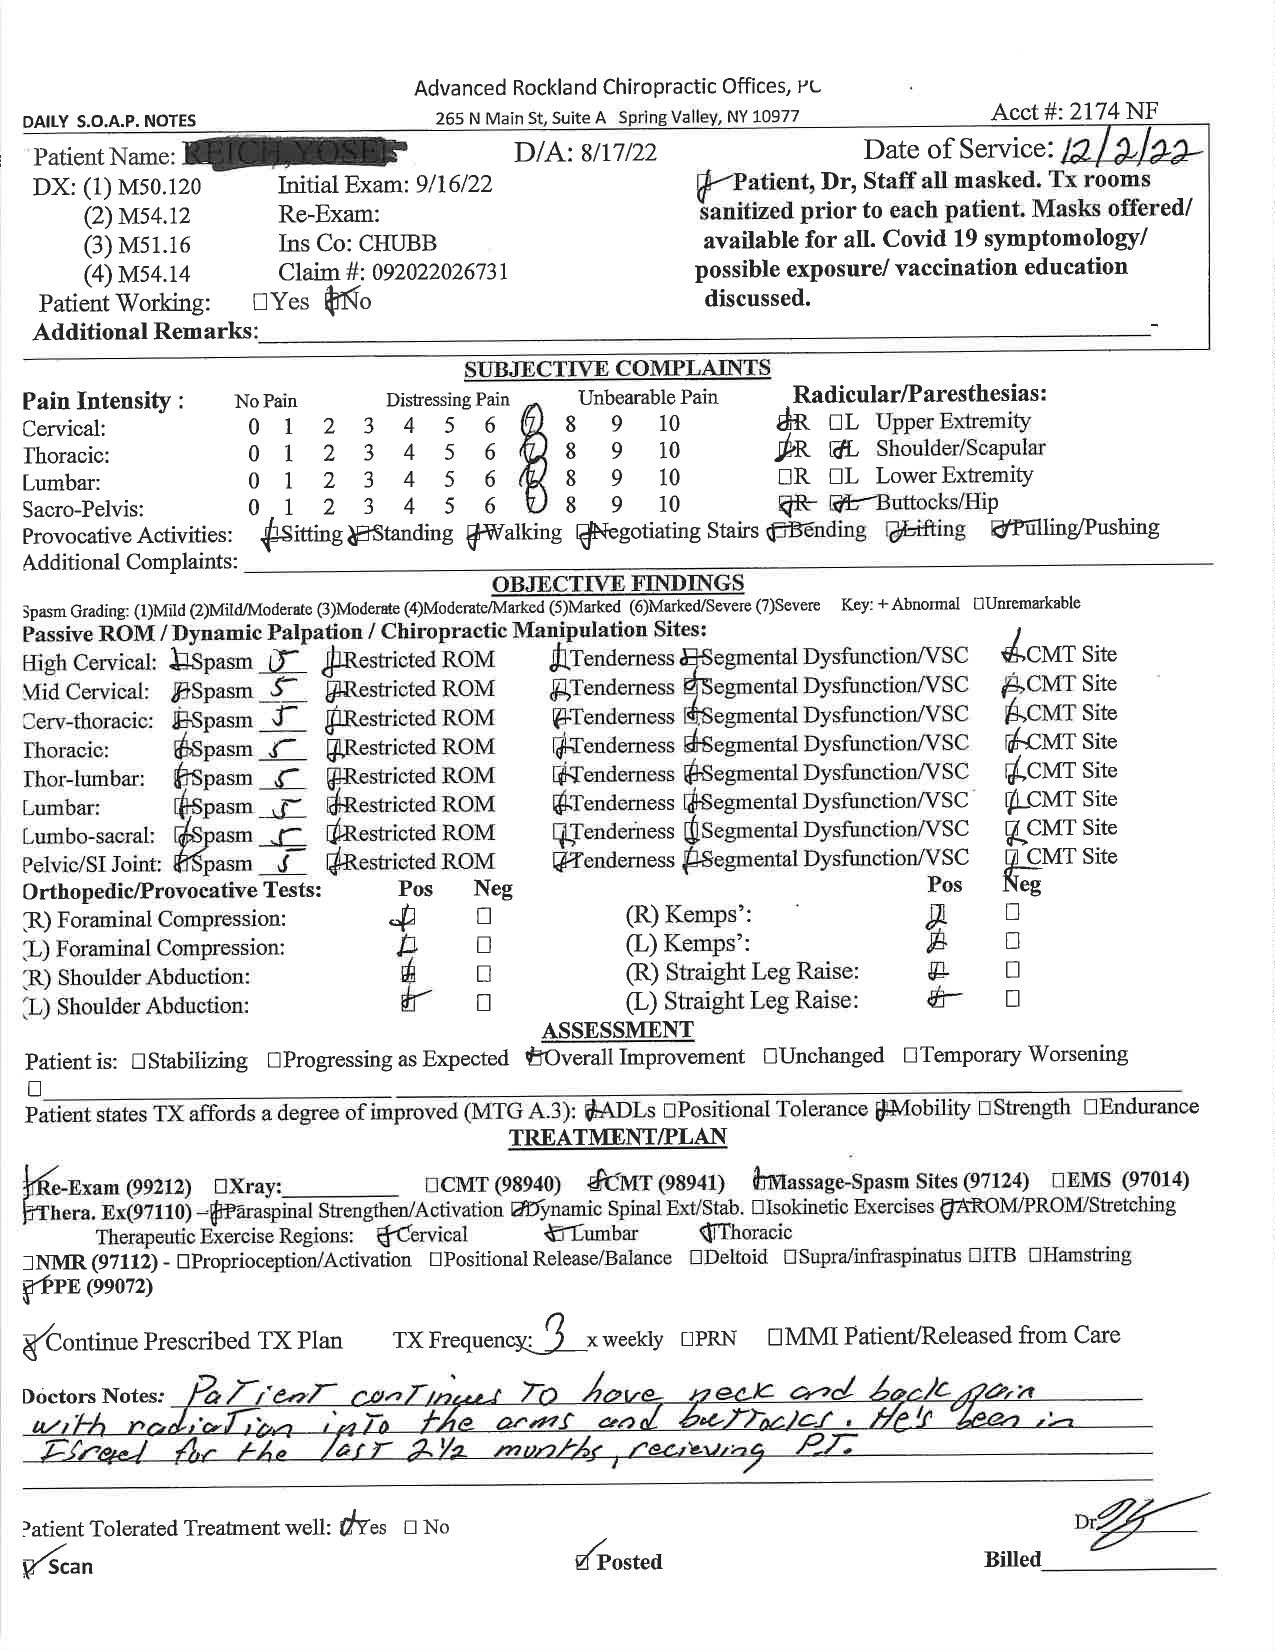 Advanced Rockland Chiropractic Offices, PC
DAILY S.O.A.P. NOTES 265 N Main St, Suite A Spring Valley, NY 10977 Acct #: 2174 NF
Patient Name: D/A: 8/17/22 Date of Service: 12/2/22
DX: (1) M50.120 Initial Exam: 9/16/22 Patient, Dr, Staff all masked. Tx rooms
(2) M54.12 Re-Exam: sanitized prior to each patient. Masks offered/
(3) M51.16 Ins Co: CHUBB available for all. Covid 19 symptomology/
(4) M54.14 Claim #: 092022026731 possible exposure/ vaccination education
Patient Working: ☐Yes ☑No discussed.
Additional Remarks:
SUBJECTIVE COMPLAINTS
Pain Intensity : No Pain Distressing Pain Unbearable Pain Radicular/Paresthesias:
Cervical: 0 1 2 3 4 5 6 7 8 9 10 ☑R ☐L Upper Extremity
Thoracic: 0 1 2 3 4 5 6 7 8 9 10 ☑R ☑L Shoulder/Scapular
Lumbar: 0 1 2 3 4 5 6 7 8 9 10 ☐R ☐L Lower Extremity
Sacro-Pelvis: 0 1 2 3 4 5 6 7 8 9 10 ☑R ☑L Buttocks/Hip
Provocative Activities: ☑Sitting ☑Standing ☑Walking ☑Negotiating Stairs ☑Bending ☑Lifting ☑Pulling/Pushing
Additional Complaints:
OBJECTIVE FINDINGS
Spasm Grading: (1)Mild (2)Mild/Moderate (3)Moderate (4)Moderate/Marked (5)Marked (6)Marked/Severe (7)Severe Key: + Abnormal ☐Unremarkable
Passive ROM / Dynamic Palpation / Chiropractic Manipulation Sites:
High Cervical: ☑Spasm 5 ☑Restricted ROM ☑Tenderness ☑Segmental Dysfunction/VSC ☑CMT Site
Mid Cervical: ☑Spasm 5 ☑Restricted ROM ☑Tenderness ☑Segmental Dysfunction/VSC ☑CMT Site
Cerv-thoracic: ☑Spasm 5 ☑Restricted ROM ☑Tenderness ☑Segmental Dysfunction/VSC ☑CMT Site
Thoracic: ☑Spasm 5 ☑Restricted ROM ☑Tenderness ☑Segmental Dysfunction/VSC ☑CMT Site
Thor-lumbar: ☑Spasm 5 ☑Restricted ROM ☑Tenderness ☑Segmental Dysfunction/VSC ☑CMT Site
Lumbar: ☑Spasm 5 ☑Restricted ROM ☑Tenderness ☑Segmental Dysfunction/VSC ☑CMT Site
Lumbo-sacral: ☑Spasm 5 ☑Restricted ROM ☑Tenderness ☑Segmental Dysfunction/VSC ☑CMT Site
Pelvic/SI Joint: ☑Spasm 5 ☑Restricted ROM ☑Tenderness ☑Segmental Dysfunction/VSC ☑CMT Site
Orthopedic/Provocative Tests: Pos Neg Pos Neg
(R) Foraminal Compression: ☑ ☐ (R) Kemps': ☑ ☐
(L) Foraminal Compression: ☑ ☐ (L) Kemps': ☑ ☐
(R) Shoulder Abduction: ☑ ☐ (R) Straight Leg Raise: ☑ ☐
(L) Shoulder Abduction: ☑ ☐ (L) Straight Leg Raise: ☑ ☐
ASSESSMENT
Patient is: ☐Stabilizing ☐Progressing as Expected ☑Overall Improvement ☐Unchanged ☐Temporary Worsening
☐
Patient states TX affords a degree of improved (MTG A.3): ☑ADLs ☐Positional Tolerance ☑Mobility ☐Strength ☐Endurance
TREATMENT/PLAN
☑Re-Exam (99212) ☐Xray: ☐CMT (98940) ☑CMT (98941) ☑Massage-Spasm Sites (97124) ☐EMS (97014)
☑Thera. Ex(97110) – ☑Paraspinal Strengthen/Activation ☑Dynamic Spinal Ext/Stab. ☐Isokinetic Exercises ☑AROM/PROM/Stretching
Therapeutic Exercise Regions: ☑Cervical ☑Lumbar ☑Thoracic
☐NMR (97112) - ☐Proprioception/Activation ☐Positional Release/Balance ☐Deltoid ☐Supra/infraspinatus ☐ITB ☐Hamstring
☑PPE (99072)
☑Continue Prescribed TX Plan TX Frequency: 3 x weekly ☐PRN ☐MMI Patient/Released from Care
Doctors Notes: Patient continues to have neck and back pain
with radiation into the arms and buttocks. He's been in
Isreal for the last 2 1/2 months, recieving P.T.
Patient Tolerated Treatment well: ☑Yes ☐ No Dr.
☑ Scan ☑ Posted Billed